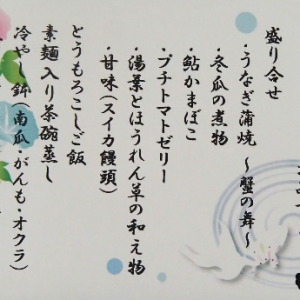 盛り合せ
・うなぎ蒲焼 ～蟹の舞～
・冬瓜の煮物
・鮎かまぼこ
・プチトマトゼリー
・湯葉とほうれん草の和え物
・甘味(スイカ饅頭)
どうもろこしご飯
素麺入り茶碗蒸し
冷やし鉢(南瓜・がんも・オクラ)